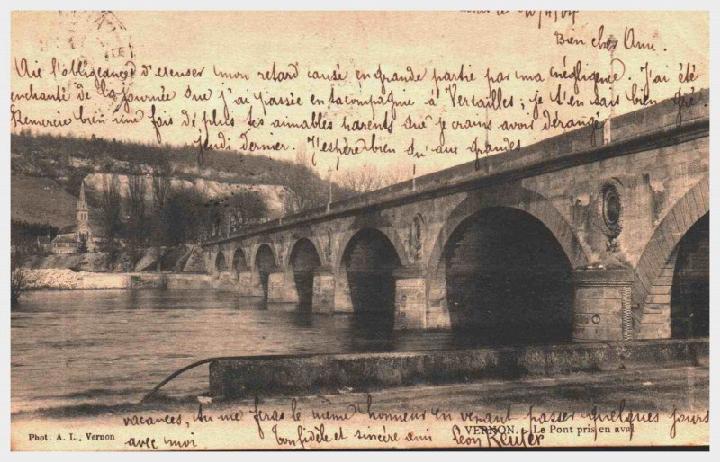 Bien cher Ami.
Aie l'obligeance d'excuser mon retard causé en grande partie par ma négligence. J'ai été
enchanté de la journée que j'ai passée en ta compagnie à Versailles ; je t'en sais bien gré.
Remercie bien une fois de plus tes aimables parents que je crains avoir dérangé
jeudi dernier. J'espère bien qu'aux grandes
vacances, tu me feras le même honneur en venant passer quelques jours
VERNON. - Le Pont pris en aval
Phot. A. L., Vernon
avec moi
Ton fidèle et sincère ami Léon